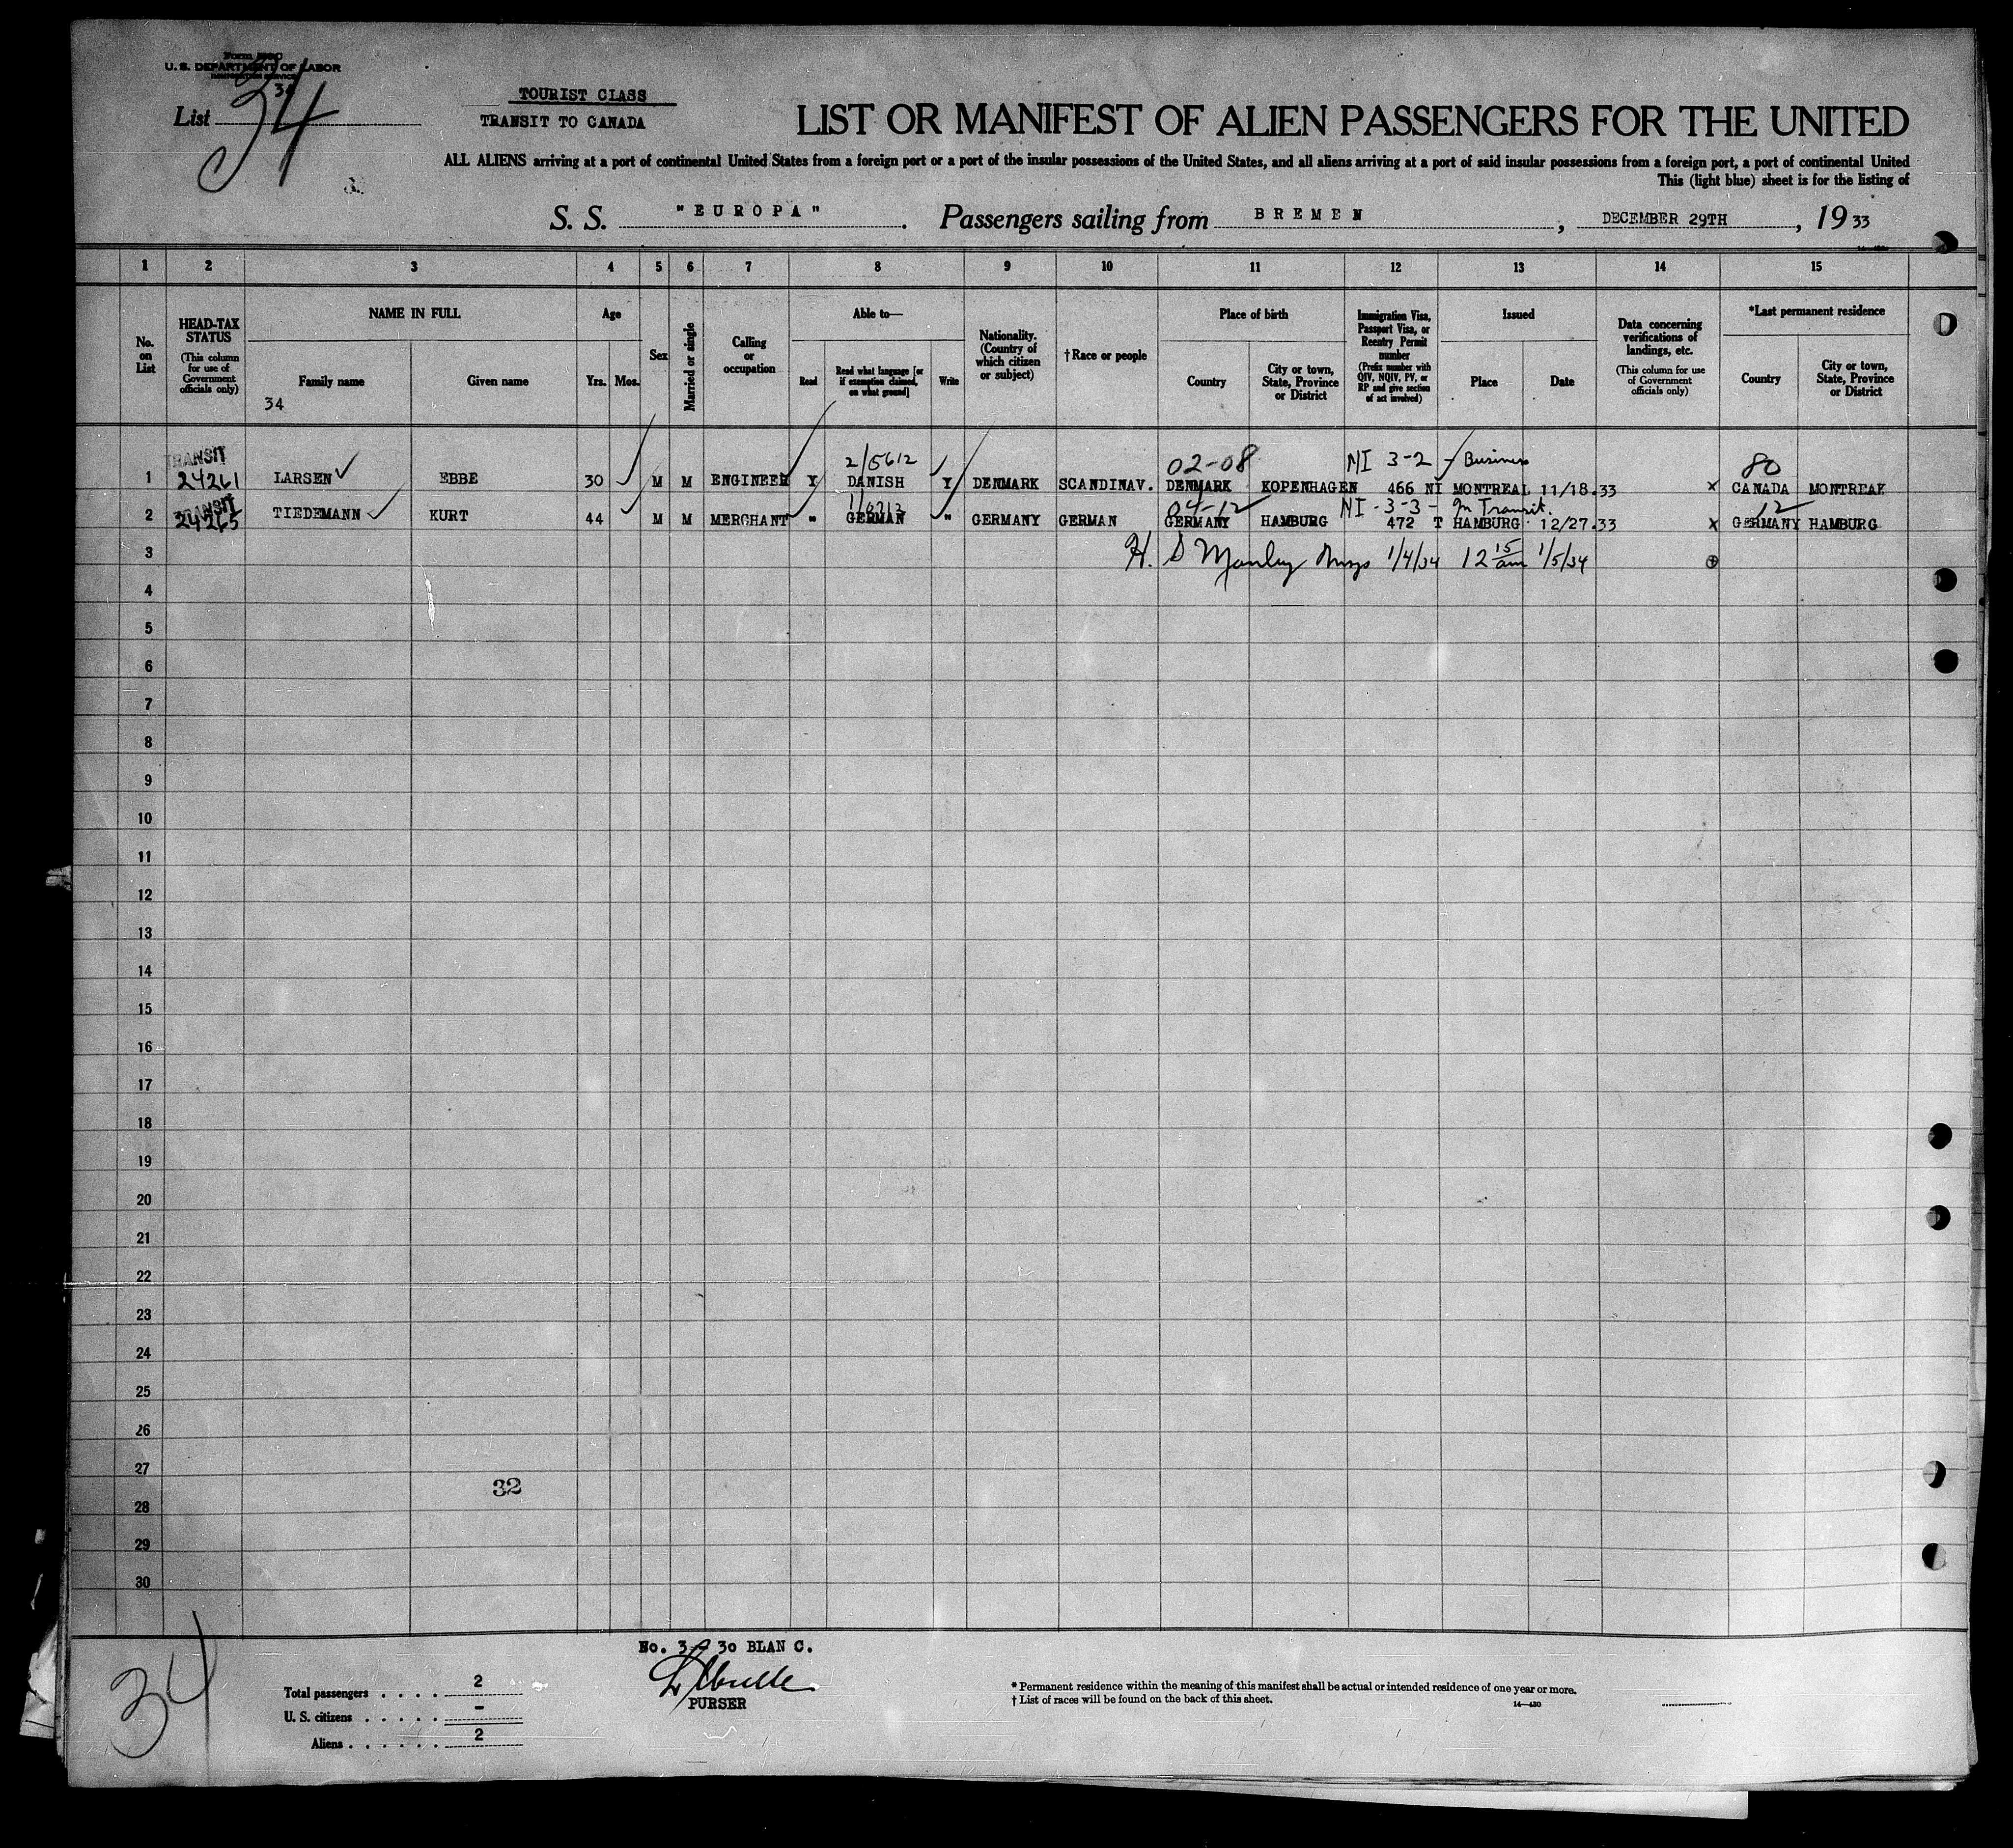 U. S. DEPARTMENT OF LABOR
IMMIGRATION SERVICE
List 34
TOURIST CLASS
TRANSIT TO CANADA
LIST OR MANIFEST OF ALIEN PASSENGERS FOR THE UNITED
ALL ALIENS arriving at a port of continental United States from a foreign port or a port of the insular possessions of the United States, and all aliens arriving at a port of said insular possessions from a foreign port, a port of continental United
This (light blue) sheet is for the listing of
S. S. "EUROPA". Passengers sailing from BREMEN, DECEMBER 29TH, 1933
1 2 3 4 5 6 7 8 9 10 11 12 13 14 15
No. on List
HEAD-TAX STATUS (This column for use of Government officials only)
NAME IN FULL
Family name
Given name
34
Age
Yrs. Mos.
Sex
Married or single
Calling or occupation
Able to—
Read
Read what language [or if exemption claimed, on what ground]
Write
Nationality. (Country of which citizen or subject)
†Race or people
Place of birth
Country
City or town, State, Province or District
Immigration Visa, Passport Visa, or Reentry Permit number (Prefix number with QIV, NQIV, PV, or RP and give section of act involved)
Issued
Place
Date
Data concerning verifications of landings, etc. (This column for use of Government officials only)
*Last permanent residence
Country
City or town, State, Province or District
TRANSIT 2/5612 02-08 NI 3-2 Business 80
1 24261 LARSEN EBBE 30 M M ENGINEER Y DANISH Y DENMARK SCANDINAV. DENMARK KOPENHAGEN 466 NI MONTREAL 11/18.33 x CANADA MONTREAL
TRANSIT 04-12 NI-3-3- In Transit. 12
2 24265 TIEDEMANN KURT 44 M M MERCHANT " GERMAN " GERMANY GERMAN GERMANY HAMBURG 472 T HAMBURG 12/27.33 x GERMANY HAMBURG
3 H. S Manley 1/4/34 12 15 am 1/5/34
4
5
6
7
8
9
10
11
12
13
14
15
16
17
18
19
20
21
22
23
24
25
26
27
32
28
29
30
34
No. 30 BLAN C.
PURSER
Total passengers . . . . 2
U. S. citizens . . . . . -
Aliens . . . . . . 2
* Permanent residence within the meaning of this manifest shall be actual or intended residence of one year or more.
† List of races will be found on the back of this sheet.
14—430